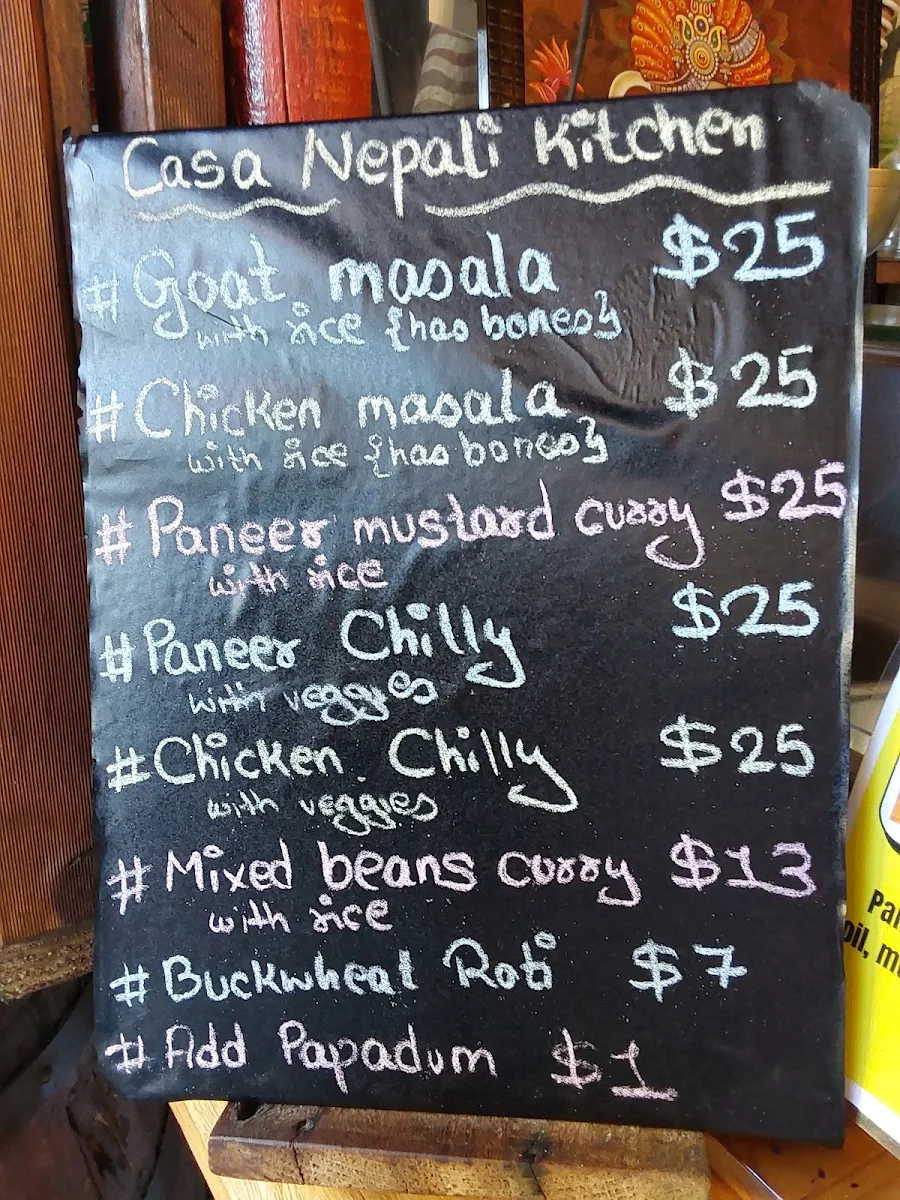 Casa Nepali Kitchen
# Goat masala $25
with rice {has bones}
# Chicken masala $25
with rice {has bones}
# Paneer mustard curry $25
with rice
# Paneer Chilly $25
with veggies
# Chicken Chilly $25
with veggies
# Mixed beans curry $13
with rice
# Buckwheat Roti $7
# Add Papadum $1
oil,